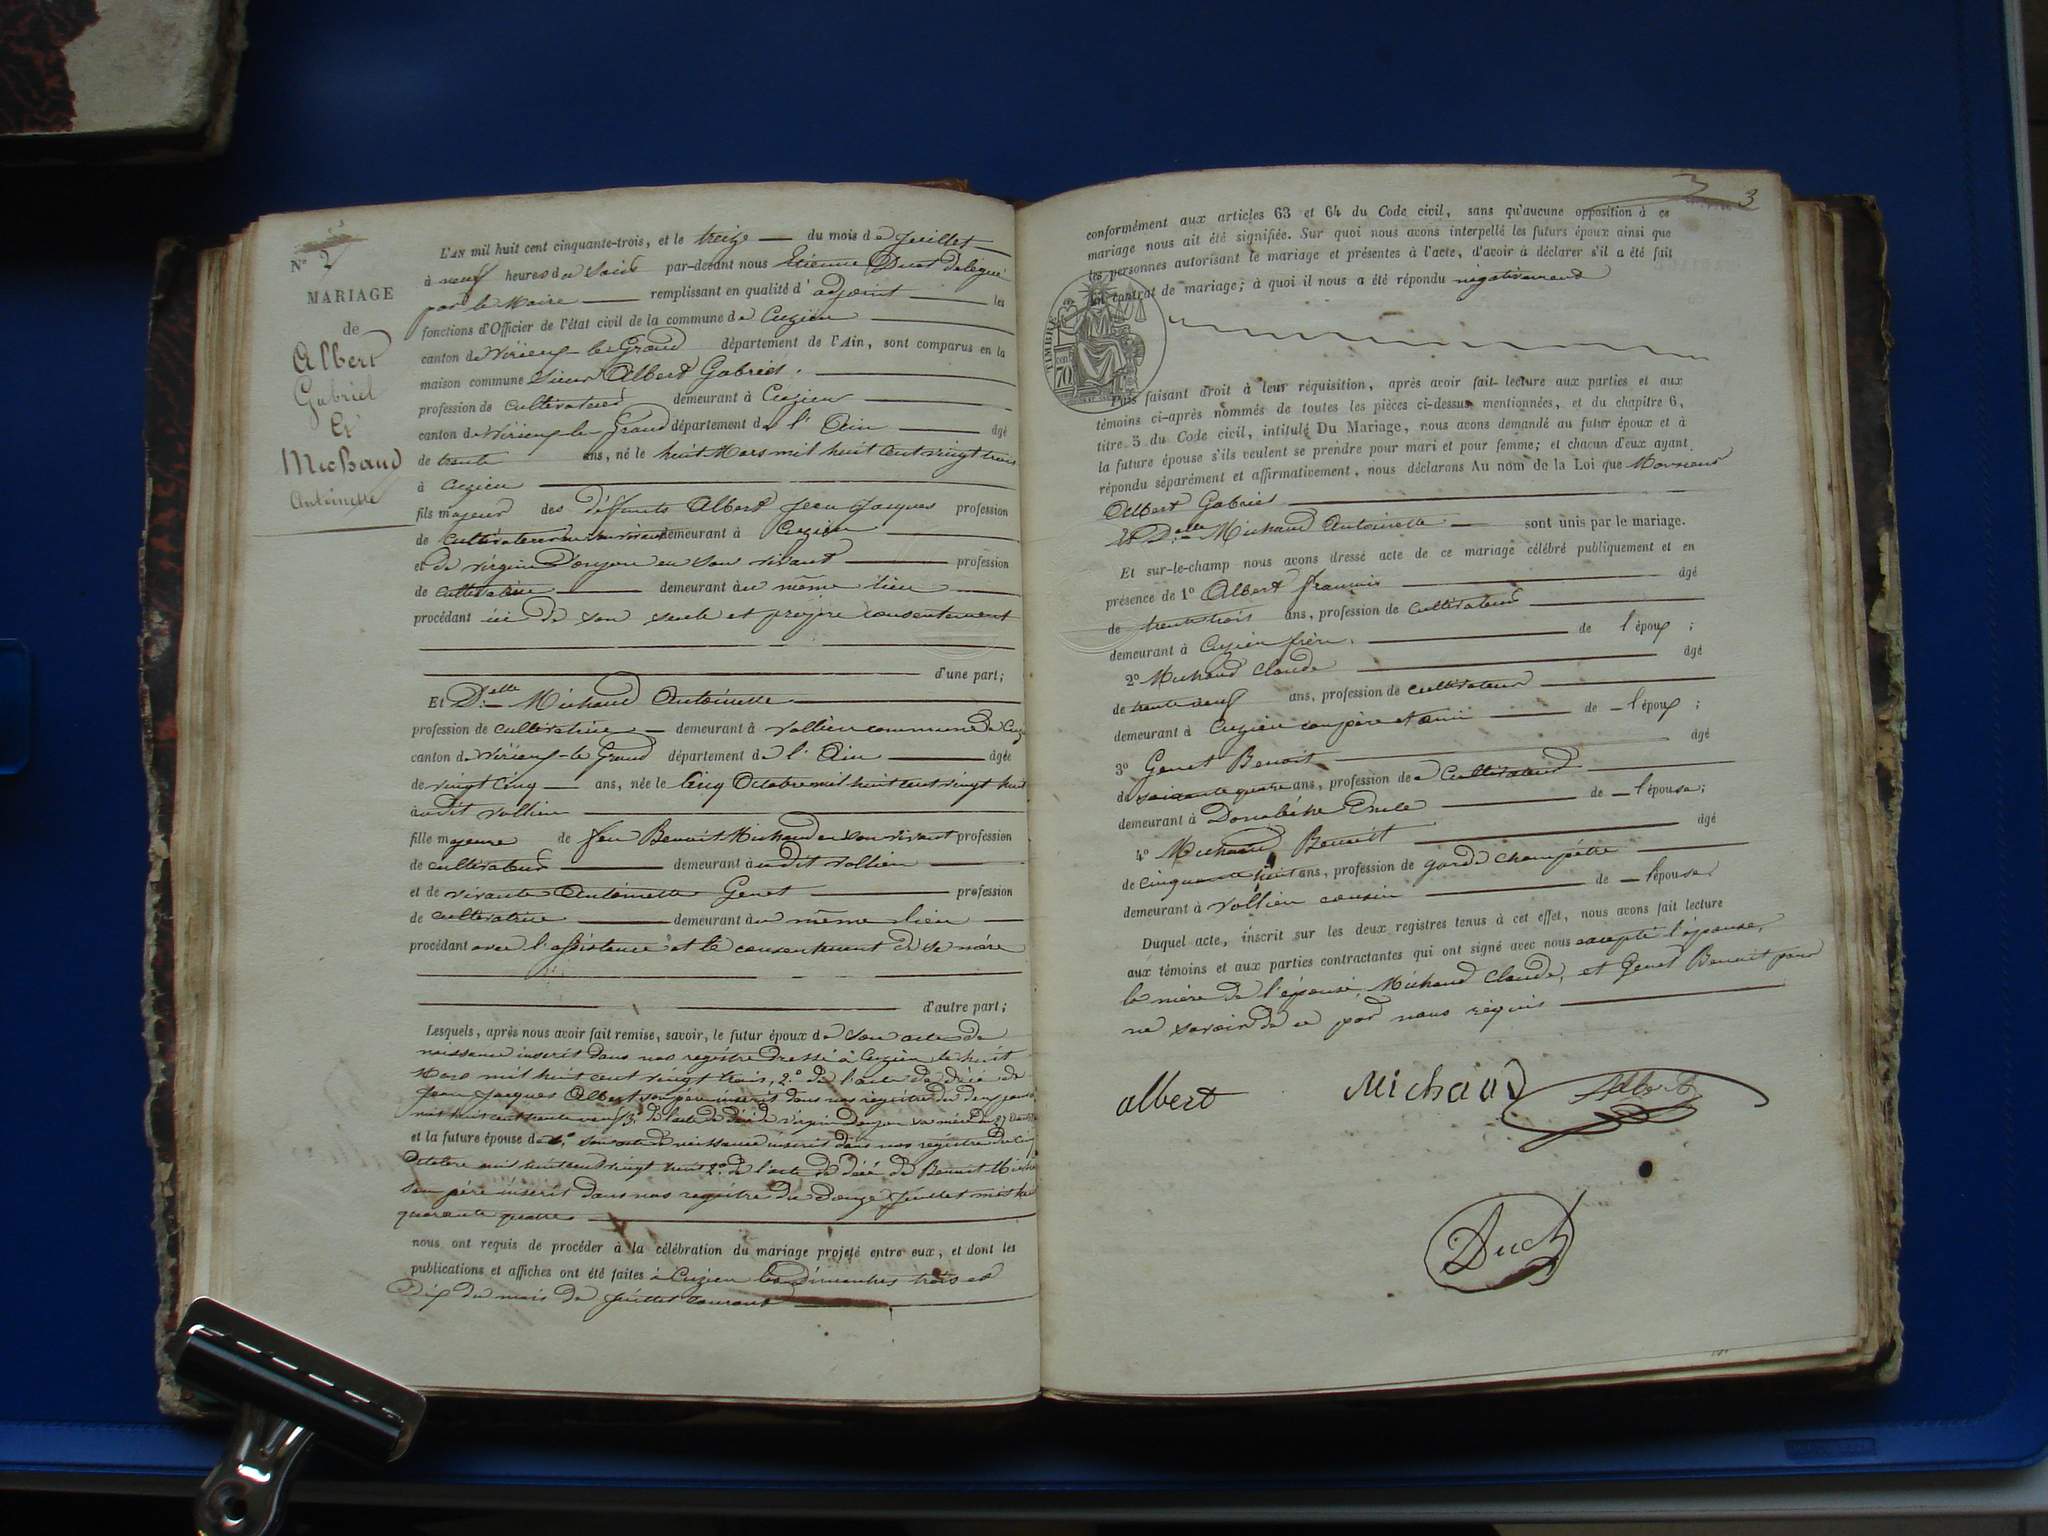 N° 2
MARIAGE
de
Albert
Gabriel
Et
Michaud
Antoinette
L'AN mil huit cent cinquante-trois, et le treize du mois de Juillet
à neuf heures du Soir par-devant nous Etienne Duet délégué
par le Maire remplissant en qualité d'adjoint les
fonctions d'Officier de l'état civil de la commune de Cuzieu
canton de Virieu-le-Grand département de l'Ain, sont comparus en la
maison commune Sieur Albert Gabriel.
profession de cultivateur demeurant à Cuzieu
canton de Virieu-le-Grand département de l'Ain âgé
de trente ans, né le huit Mars mil huit cent vingt trois
à Cuzieu
fils majeur des défunts Albert Jean Jacques profession
de cultivateur demeurant à Cuzieu
et de virginie en son vivant profession
de cultivatrice demeurant au même lieu
procédant ici de son seule et propre consentement
d'une part;
Et D.elle Michaud Antoinette
profession de cultivatrice demeurant à vollien commune de Cuz
canton de Virieu-le-Grand département de l'Ain âgée
de vingt cinq ans, née le Cinq Octobre mil huit cent vingt huit
audit vollien
fille majeure de feu Benoit Michaud en son vivant profession
de cultivateur demeurant audit vollien
et de vivante Antoinette Genet profession
de cultivatrice demeurant au même lieu
procédant avec l'assistance et le consentement de sa mère
d'autre part;
Lesquels, après nous avoir fait remise, savoir, le futur époux de son acte de
naissance inscrit dans nos registre dressé à Cuzieu le huit
Mars mil huit cent vingt trois, 2.° de l'acte de décé de
Jean Jacques Albert son père inscrit dans nos registre du
mil huit cent trente neuf 3.° de l'acte de décé de sa mère du 27
et la future épouse de 1.° son acte de naissance inscrit dans nos registre du Cinq
Octobre mil huit cent vingt huit 2.° de l'acte de décé de Benoit Mich
son père inscrit dans nos registre du douze Juillet mil hui
quarante quatre
nous ont requis de procéder à la célébration du mariage projeté entre eux, et dont les
publications et affiches ont été faites à Cuzieu les Dimanches trois et
Dix du mois de Juillet courant
3
conformément aux articles 63 et 64 du Code civil, sans qu'aucune opposition à ce
mariage nous ait été signifiée. Sur quoi nous avons interpellé les futurs époux ainsi que
les personnes autorisant le mariage et présentes à l'acte, d'avoir à déclarer s'il a été fait
un contrat de mariage; à quoi il nous a été répondu négativement
TIMBRE
70
Puis faisant droit à leur réquisition, après avoir fait lecture aux parties et aux
témoins ci-après nommés de toutes les pièces ci-dessus mentionnées, et du chapitre 6,
titre 5 du Code civil, intitulé Du Mariage, nous avons demandé au futur époux et à
la future épouse s'ils veulent se prendre pour mari et pour femme; et chacun d'eux ayant
répondu séparément et affirmativement, nous déclarons Au nom de la Loi que Monsieur
Albert Gabriel
Et D.elle Michaud Antoinette sont unis par le mariage.
Et sur-le-champ nous avons dressé acte de ce mariage célébré publiquement et en
présence de 1° Albert françois âgé
de trente trois ans, profession de cultivateur
demeurant à Cuzieu frère de l'époux;
2° Michaud Claude âgé
de trente neuf ans, profession de cultivateur
demeurant à Cuzieu compère et ami de l'époux;
3° Genet Benoit âgé
de soixante quatre ans, profession de cultivateur
demeurant à Oncle de l'épouse;
4° Michaud Benoit âgé
de cinquante huit ans, profession de garde champêtre
demeurant à vollien cousin de l'épouse
Duquel acte, inscrit sur les deux registres tenus à cet effet, nous avons fait lecture
aux témoins et aux parties contractantes qui ont signé avec nous excepté l'épouse,
la mère de l'epouse, Michaud Claude, et Genet Benoit pour
ne savoir de ce par nous requis
albert Michaud Albert
Duet